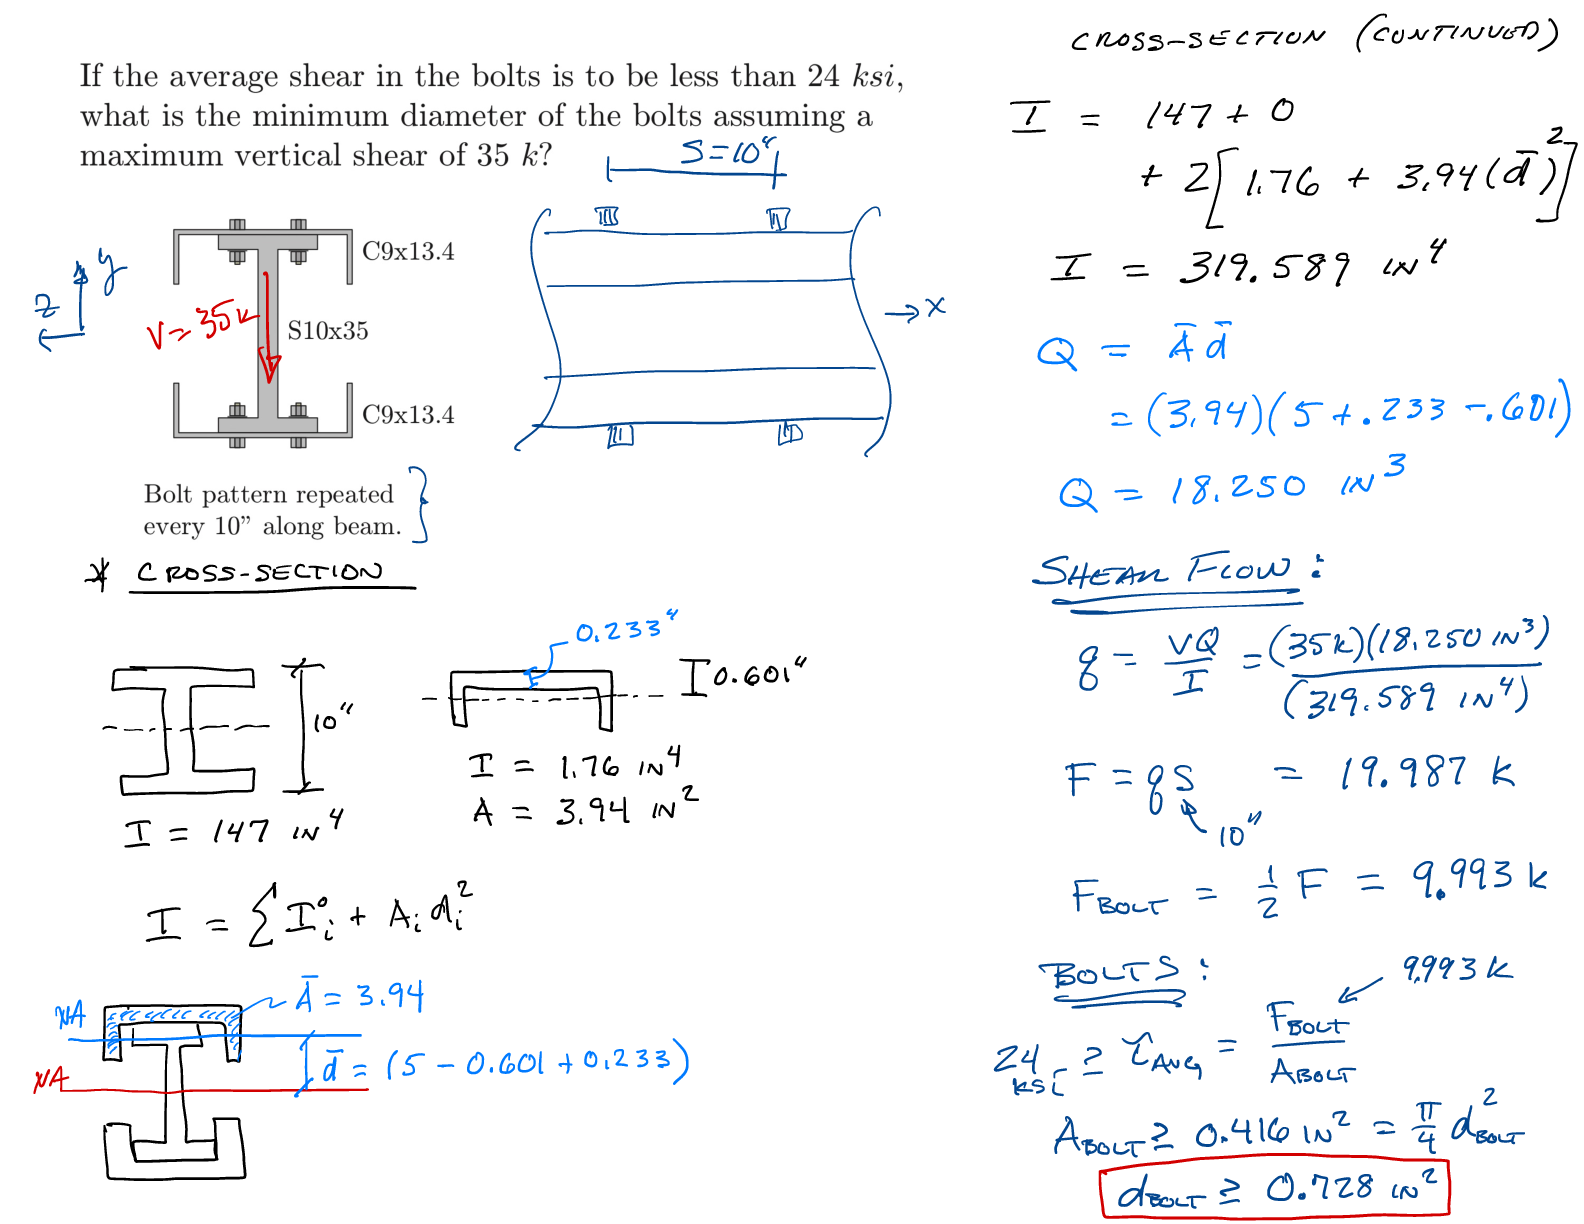 If the average shear in the bolts is to be less than 24 ksi,
what is the minimum diameter of the bolts assuming a
maximum vertical shear of 35 k?
S=10"
C9x13.4
y
z
V=35k
S10x35
→x
C9x13.4
Bolt pattern repeated
every 10” along beam.
* CROSS-SECTION
0.233"
0.601"
10"
I = 147 IN⁴
I = 1.76 IN⁴
A = 3.94 IN²
I = Σ I°ᵢ + Aᵢ dᵢ²
NA
Ā = 3.94
NA
d̄ = (5 - 0.601 + 0.233)
CROSS-SECTION (CONTINUED)
I = 147 + 0
+ 2[1.76 + 3.94(d̄)²]
I = 319.589 IN⁴
Q = Ā d̄
= (3.94)(5 + .233 - .601)
Q = 18.250 IN³
SHEAR FLOW:
q = VQ/I = (35k)(18.250 IN³)/(319.589 IN⁴)
F = qs = 19.987 k
10"
F_BOLT = 1/2 F = 9.993 k
BOLTS:
9.993 k
24 ksi ≥ τ_AVG = F_BOLT/A_BOLT
A_BOLT ≥ 0.416 IN² = π/4 d²_BOLT
d_BOLT ≥ 0.728 IN²